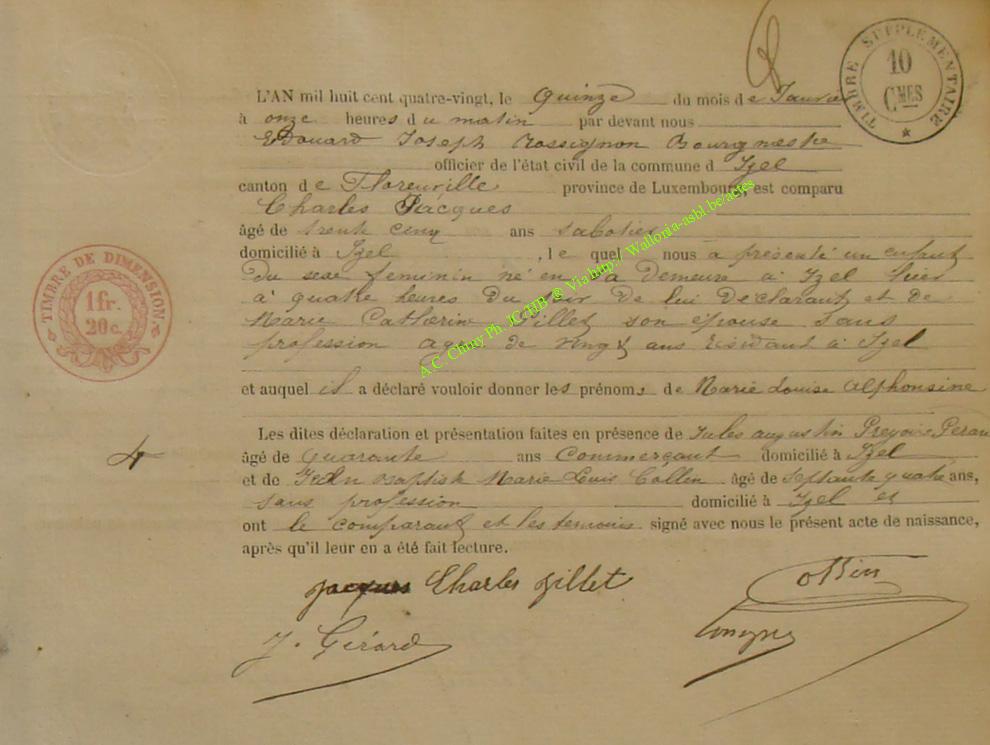 TIMBRE SUPPLEMENTAIRE
10
CMES
L'AN mil huit cent quatre-vingt, le Quinze du mois de Janvie
à onze heures du matin par devant nous
Edouard Joseph Rossignon Bourgmestre
officier de l'état civil de la commune d Izel
canton de Florenville province de Luxembourg, est comparu
Charles Jacques
âgé de trente cinq ans sabotier
domicilié à Izel , le quel nous a présenté un enfant
du sexe feminin né en sa demeure à Izel hier
à quatre heures du soir de lui declarant et de
Marie Catherin Gillet son epouse sans
profession agée de vingt ans résidant à Izel
TIMBRE DE DIMENSION
1 fr.
20 c.
et auquel il a déclaré vouloir donner les prénoms de Marie Louise Alphonsine
Les dites déclaration et présentation faites en présence de Jules augustin
âgé de quarante ans Commerçant domicilié à Izel
4
et de Jean Baptiste Marie Louis Collin âgé de septante quatre ans,
sans profession domicilié à Izel et
ont le comparant et les temoins signé avec nous le présent acte de naissance,
après qu'il leur en a été fait lecture.
Jacques Charles Gillet
J. Gérard
A.C. Chiny Ph. JCHB @ Via http://Wallonia-asbl.be/actes